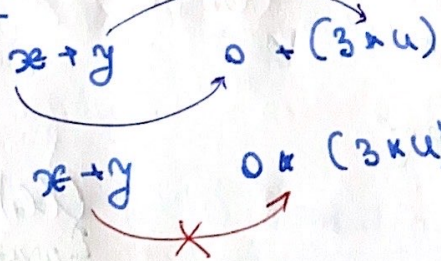 x + y 0 + (3 * 4)
x + y 0 * (3 * 4